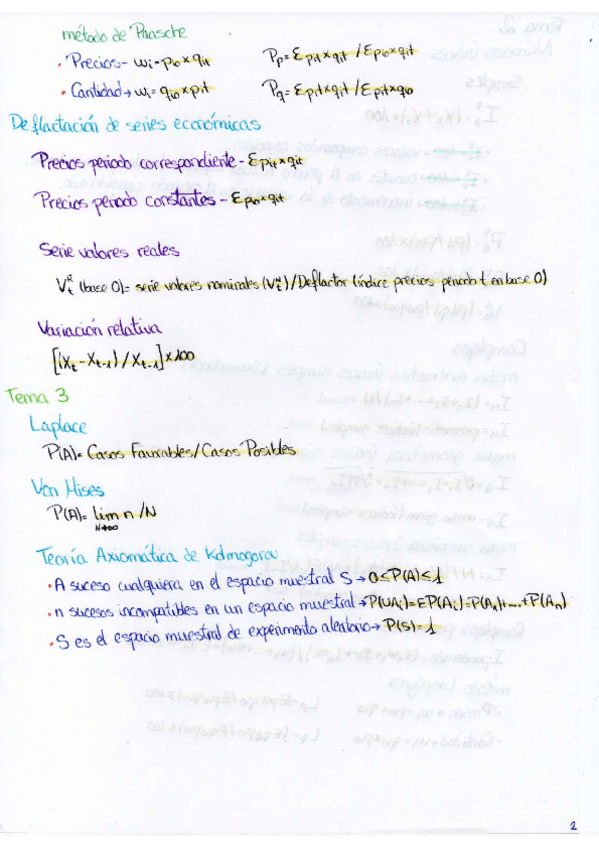 método de Paasche
• Precios- wi= pio×qit Pp= Ɛpit×qit / Ɛpio×qit
• Cantidad→ wi= qio×pit Pq= Ɛpit×qit / Ɛpit×qio
Deflactación de series económicas
Precios periodo correspondiente - Ɛpit×qit
Precios periodo constantes - Ɛpio×qit
Serie valores reales
(base 0)= serie valores nominales / Deflactor (índice precios periodo t en base 0)
Variación relativa
[(Xt - Xt-1) / Xt-1] × 100
Tema 3
Laplace
P(A)= Casos Favorables / Casos Posibles
Von Mises
P(A)= lim n/N
N→∞
Teoría Axiomática de Kolmogorov
• A suceso cualquiera en el espacio muestral S → 0≤P(A)≤1
• n sucesos incompatibles en un espacio muestral → P(UAi)=ƐP(Ai)=P(A1)+...+P(An)
• S es el espacio muestral de experimento aleatorio → P(S)=1
2